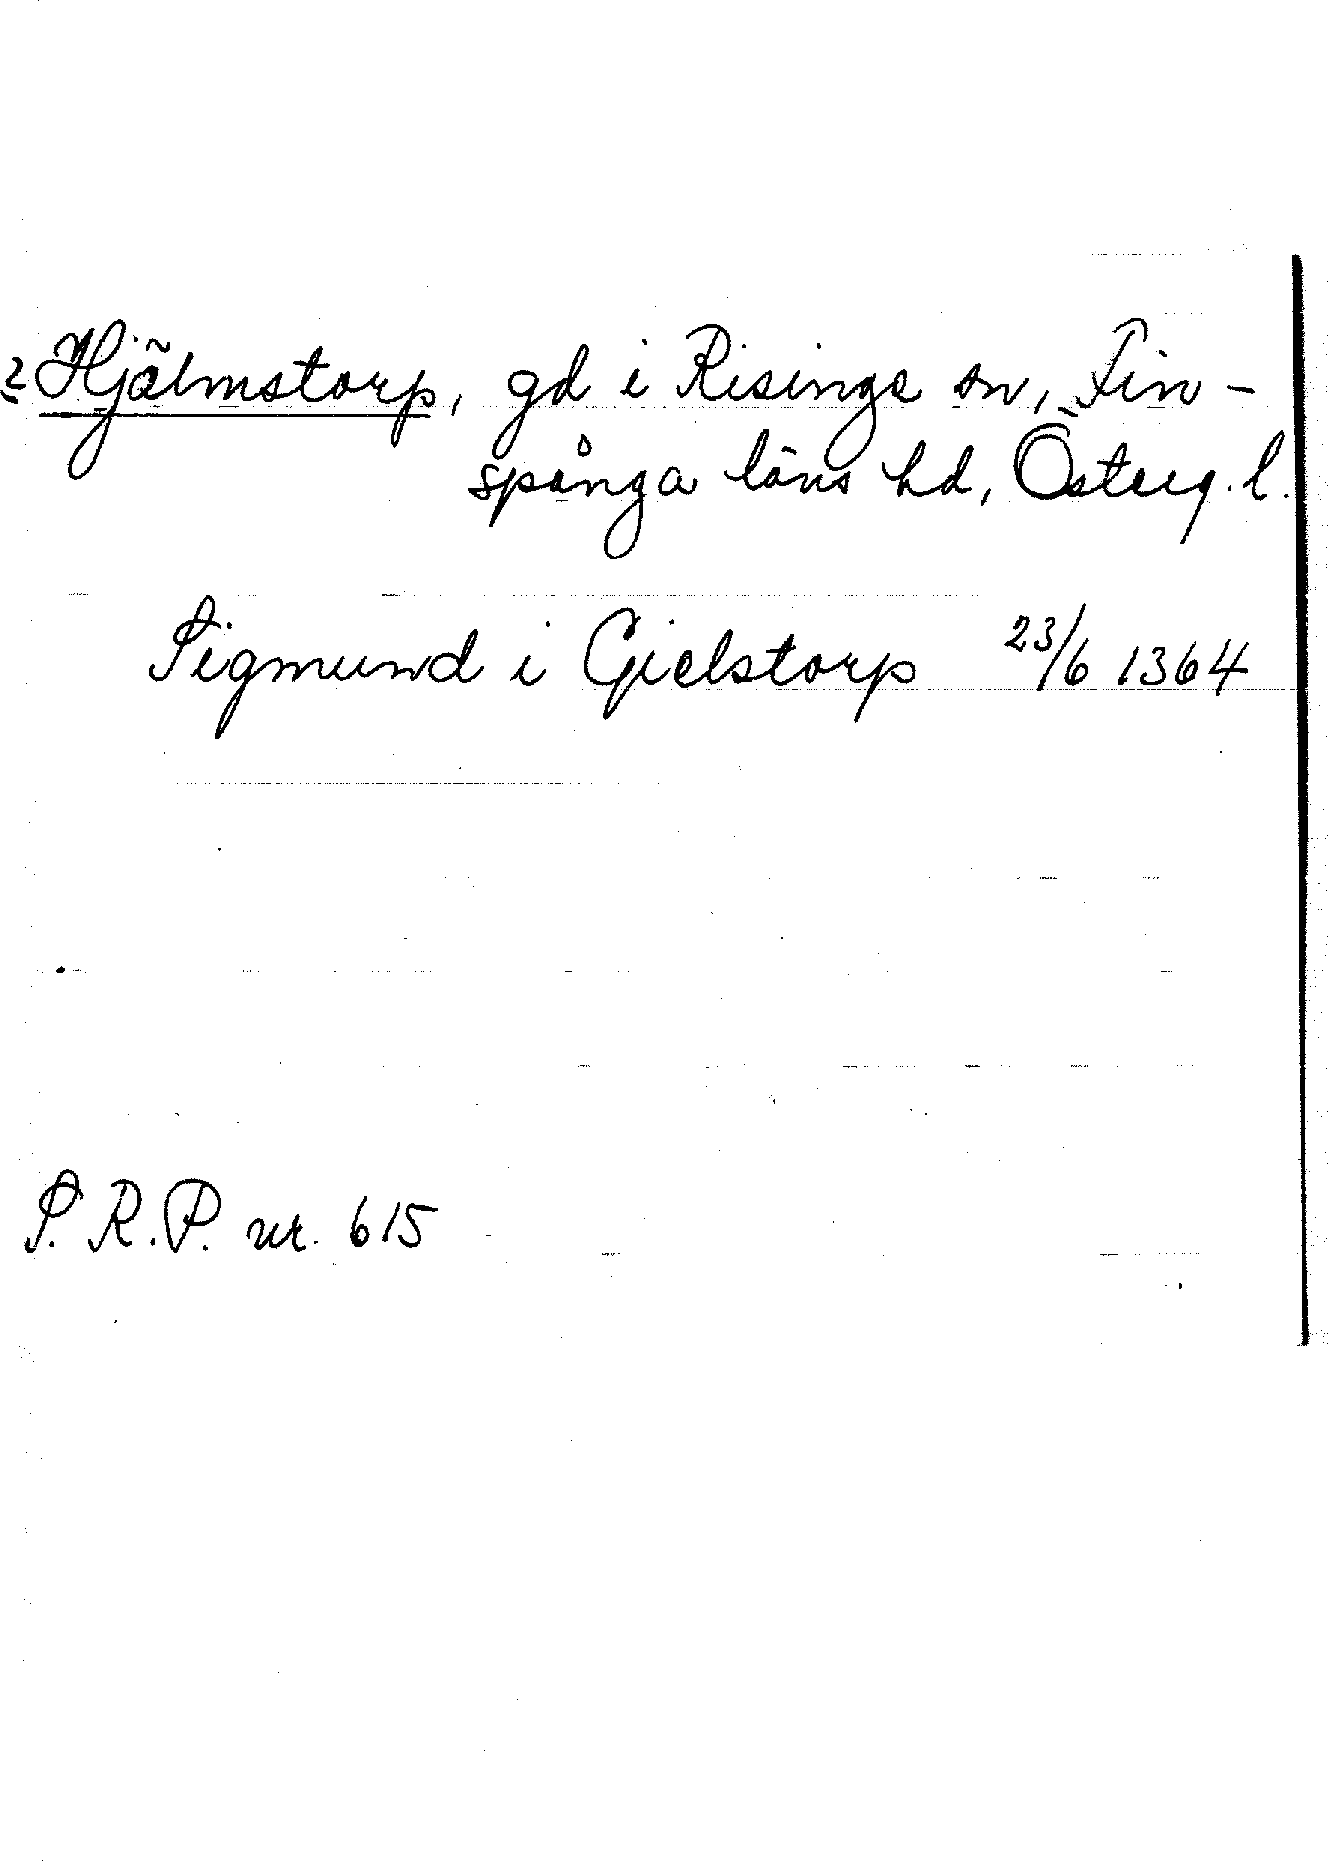 ? Hjälmstorp, gd i Risings sn, Fin-
spånga läns hd, Österg. l.
Sigmund i Gielstorp 23/6 1364
S. R. P. nr. 615